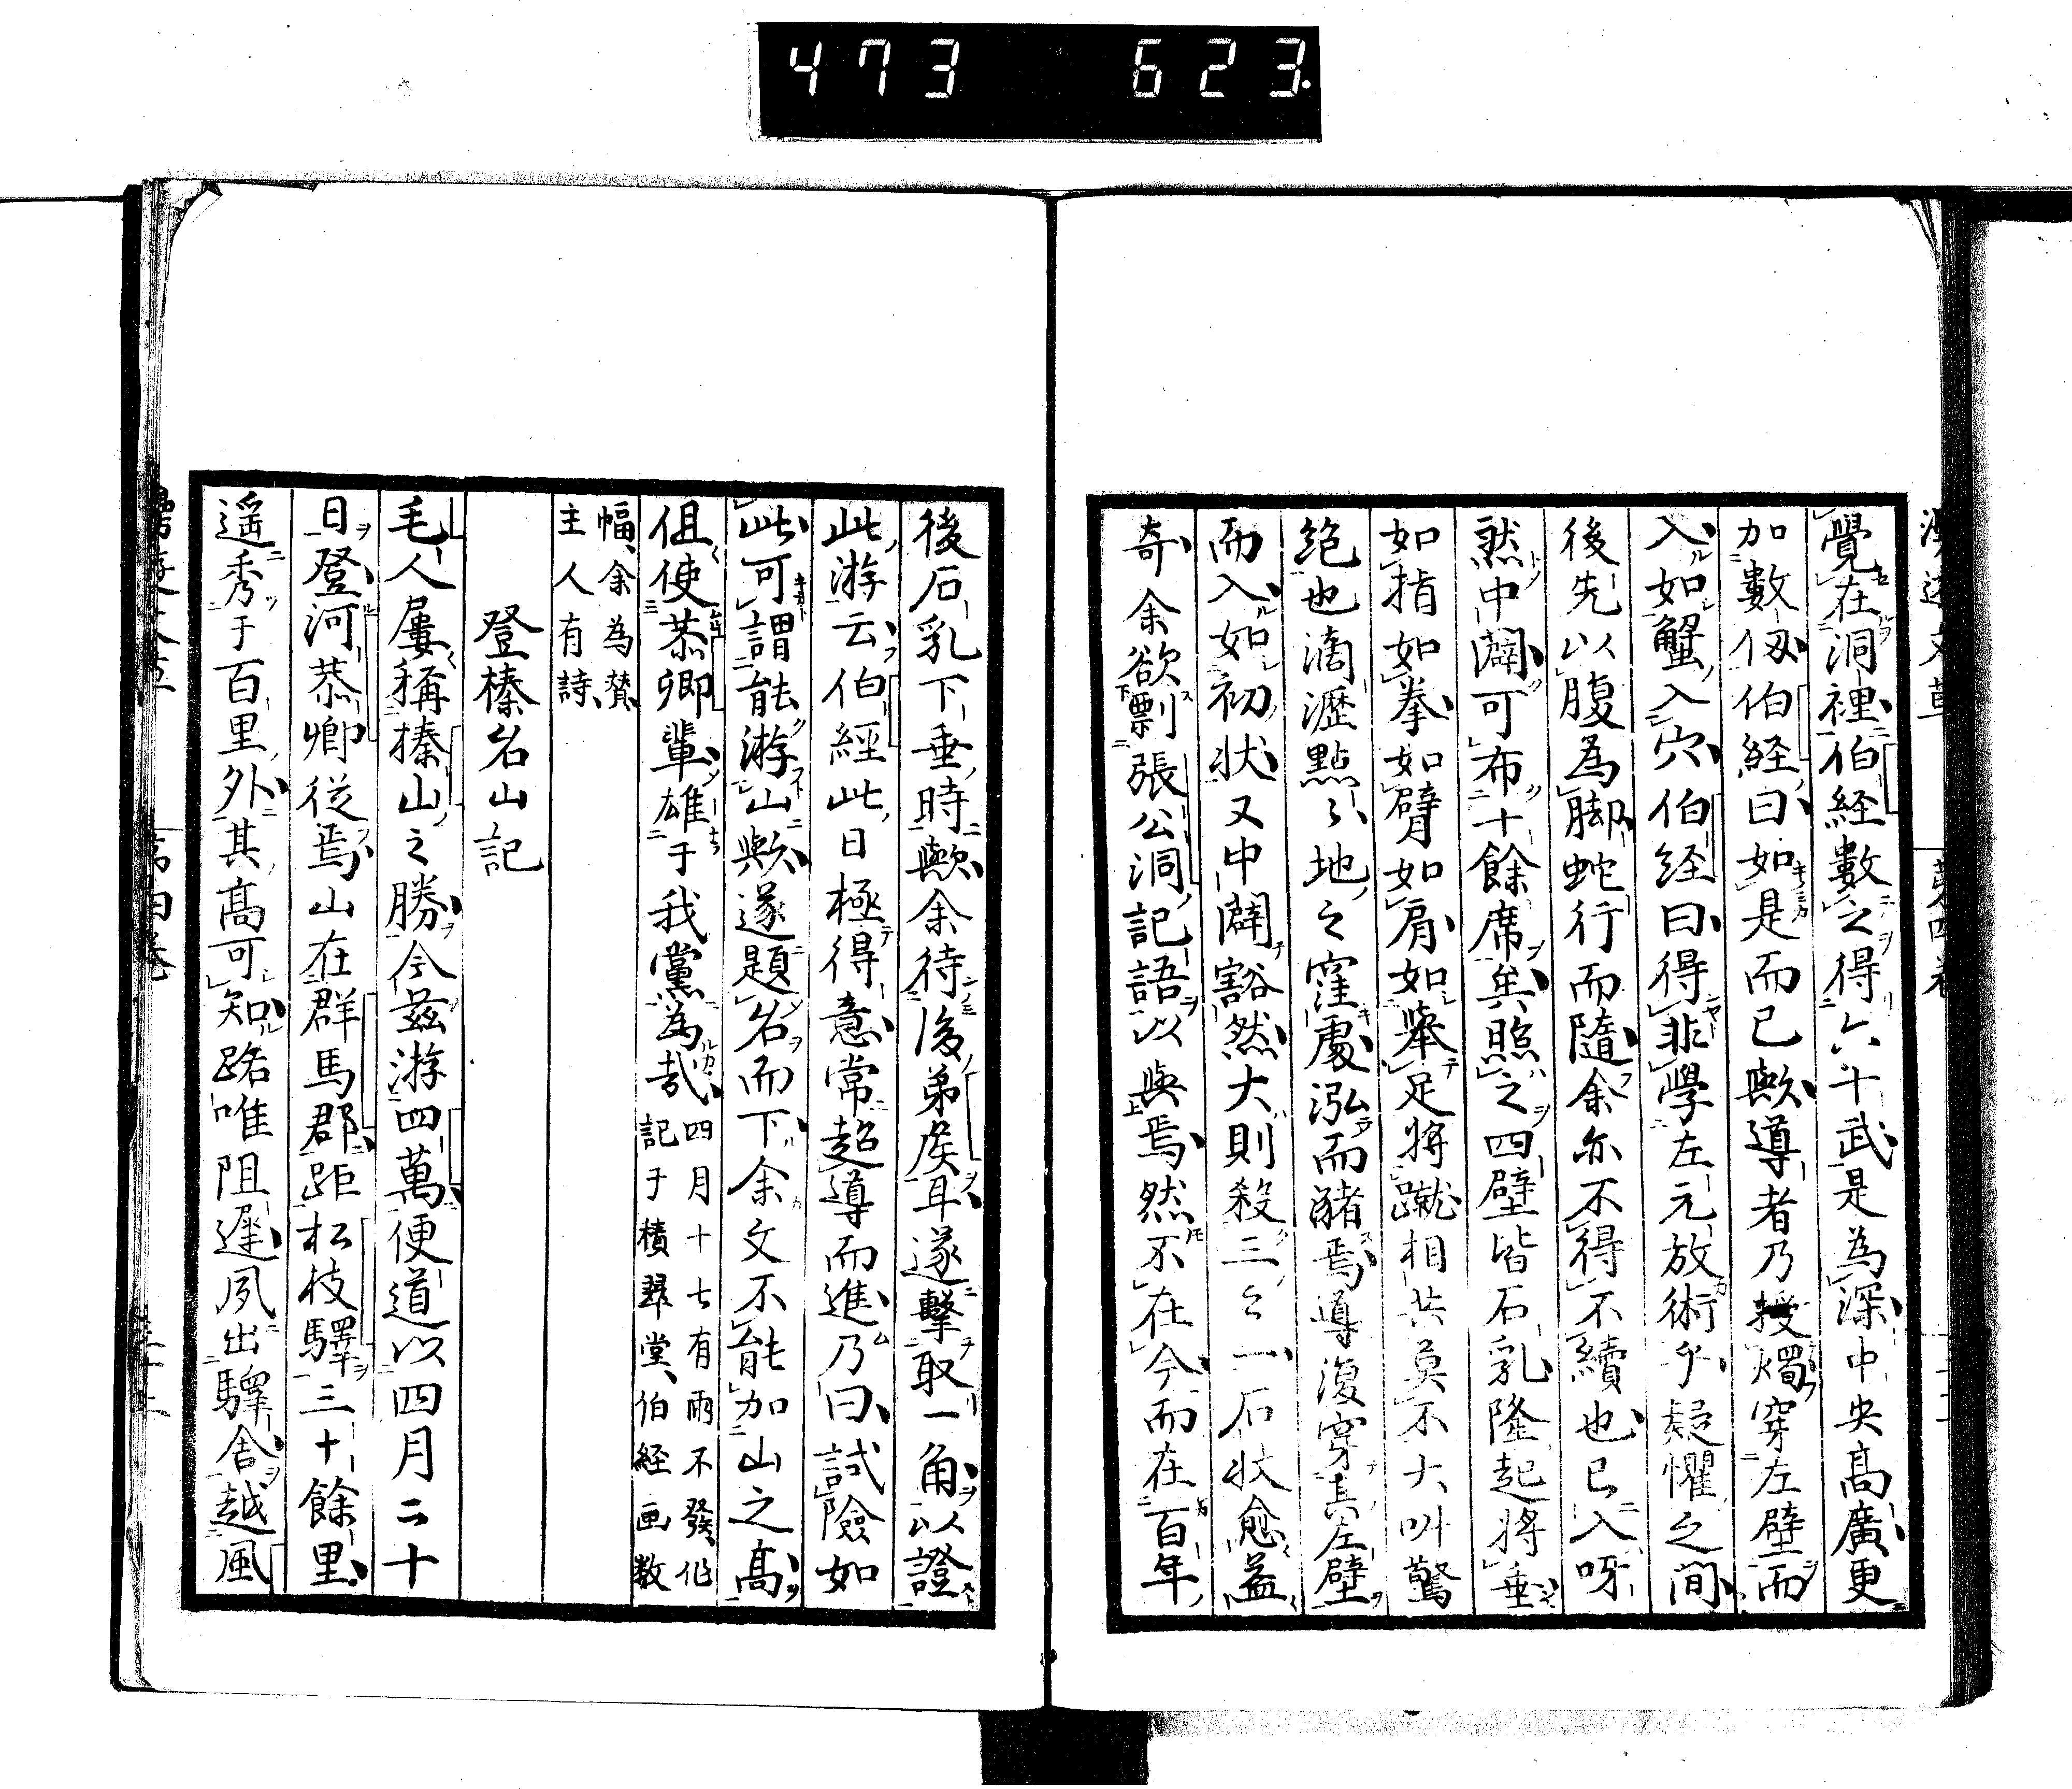 473 623.
覺在洞裡伯経數之得六十武是為深中央髙廣更
加數仭伯経曰如是而已歟導者乃授燭穿左壁而
入如蟹入穴伯経曰得非學左元放術乎疑懼之間
後先以腹為脚蛇行而隨余亦不得不續也已入呀
然中闢可布十餘席矣照之四壁皆石乳隆起將垂
如指如拳如臂如肩如擧足將蹴相共莫不大叫驚
絶也滴瀝點々地之窪處泓而瀦焉導復穿其左壁
而入如初状又中闢豁然大則殺三之一石状愈益
奇余欲剽張公洞記語以與焉然不在今而在百年
後石乳下垂時歟余待後弟矦耳遂擊取一角以證
此游云伯經此日極得意常超導而進乃曰試險如
此可謂能游山歟遂題名而下余文不能加山之髙
但使恭卿輩雄于我黨為哉四月十七有雨不發作
記于積翠堂伯経画数
幅余為賛
主人有詩
登榛名山記
毛人屢稱榛山之勝今茲游四萬便道以四月二十
日登河恭卿従焉山在群馬郡距松枝驛三十餘里
遥秀于百里外其髙可知路唯阻遲夙出驛舎越風